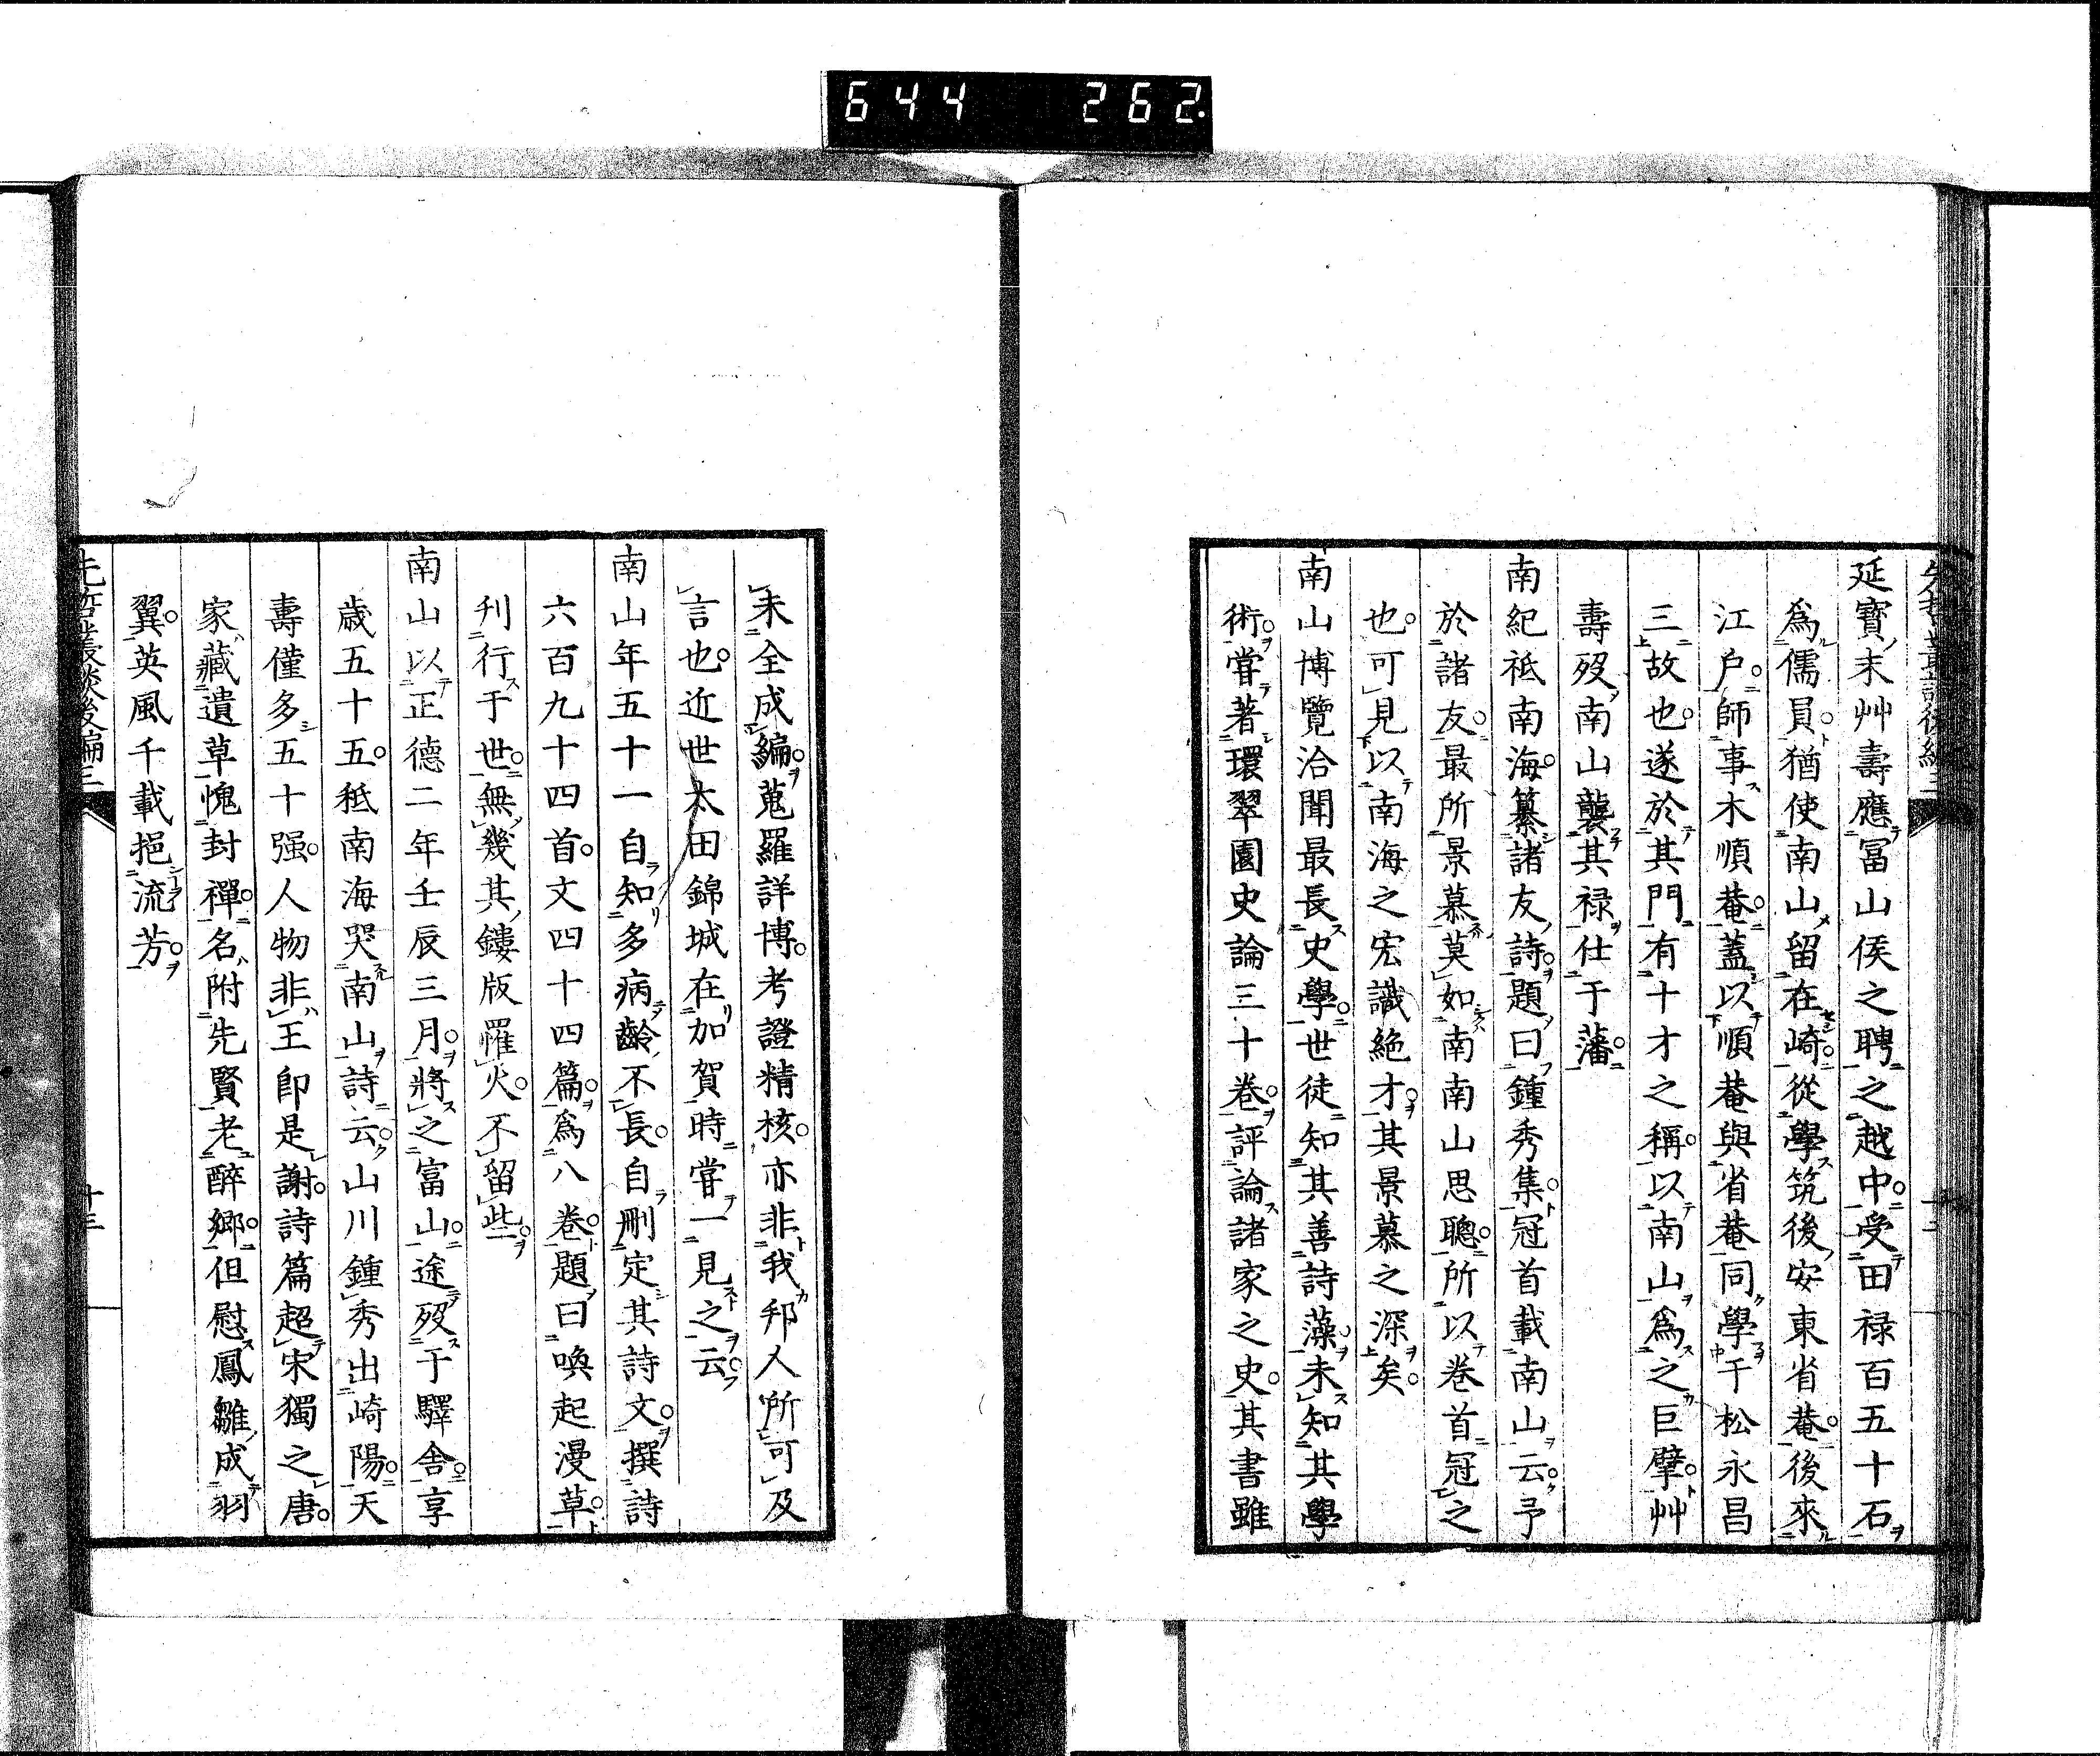 644 262.
延寶末艸壽應冨山侯之聘之越中受田禄百五十石
爲儒員猶使南山留在崎從學筑後安東省菴後來
江戶師事木順菴蓋以順菴與省菴同學于松永昌
三故也遂於其門有十才之稱以南山爲之巨擘艸
壽歿南山襲其禄仕于藩
南紀祗南海纂諸友詩題曰鍾秀集冠首載南山云予
於諸友最所景慕莫如南南山思聰所以卷首冠之
也可見以南海之宏識絶才其景慕之深矣
南山博覽洽聞最長史學世徒知其善詩藻未知其學
術嘗著環翠園史論三十卷評論諸家之史其書雖
未全成編蒐羅詳博考證精核亦非我邦人所可及
言也近世太田錦城在加賀時嘗一見之云
南山年五十一自知多病齡不長自刪定其詩文撰詩
六百九十四首文四十四篇爲八卷題曰喚起漫草
刋行于世無幾其鏤版罹火不留些
南山以正德二年壬辰三月將之富山途歿于驛舎享
歳五十五秪南海哭南山詩云山川鍾秀出崎陽天
壽僅多五十强人物非王卽是謝詩篇超宋獨之唐
家藏遺草愧封禪名附先賢老醉鄉但慰鳳雛成羽
翼英風千載挹流芳
先哲叢談後編三
十三